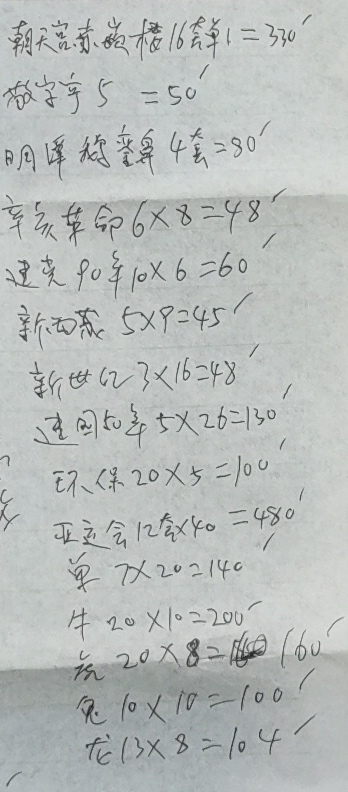 朝天宫赤嵌楼16套单1=330
敬字亭 5 =50
明 4套=80
辛亥革命 6×8=48
建党90年10×6=60
新西藏 5×9=45
新世纪 3×16=48
建国50年 5×26=130
环保 20×5=100
亚运会12套×40=480
单 7×20=140
牛 20×10=200
虎 20×8=160
兔 10×10=100
龙 13×8=104